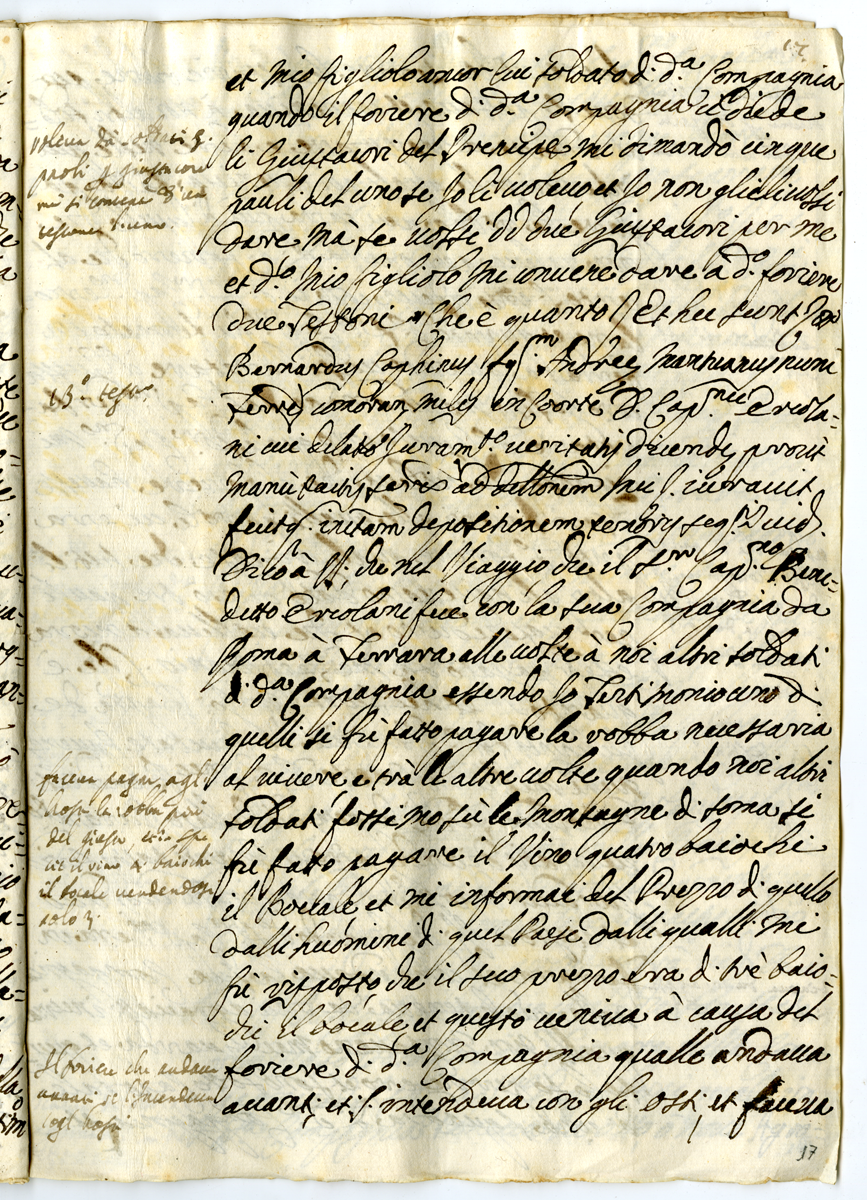 et mio figliolo ancor lui soldato di d.ª Compagnia
quando il foriere di d.ª Compagnia ci diede
li Giustacori del Prencipe mi dimandò cinque
pauli del uno se Io li volevo, et Io non glieli volsi
dare mà se volsi dd due Giustacori per me
et d.º mio figliolo mi convene dare à d.º foriere
due Testoni Che è quanto / Et hec sunt
Bernardus Caphinus fq. Andreę Mantuanus nunc
Ferrę comoran miles in Coorte D. Cap.nei Ercola=
ni cui delato Juram.to veritatis dicendę prout
manu tactis ad dellonem mei J. iuravit
fecitq. depositionem tenoris seq. Vid.
Dico à che nel Viaggio che il S.r Cap.no Bene=
detto Ercolani fece con la sua Compagnia da
Roma à Ferrara alle volte à noi altri soldati
di d.ª Compagnia essendo Io Testimonio uno di
quelli si fù fatto pagare la robba necessaria
al vivere e trà le altre volte quando noi altri
soldati fossimo sù le montagne di soma si
fù fatto pagare il Vino quatro baiochi
il Bocale et mi informai del Prezzo di quello
dalli huomine di quel Paese dalli qualli mi
fù risposto che il suo prezzo era di trè baio=
chi il bocale et questo veniva à causa del
foriere di d.ª Compagnia qualle andava
avanti, et s. intendeva con gli osti, et faceva
paoli
13.º test.
faceva pagar agli
il vino 4 baiochi
il bocale vendendosi
solo 3
Il foriere che andava
avanti se l'intendeva
cogl'hosti
17